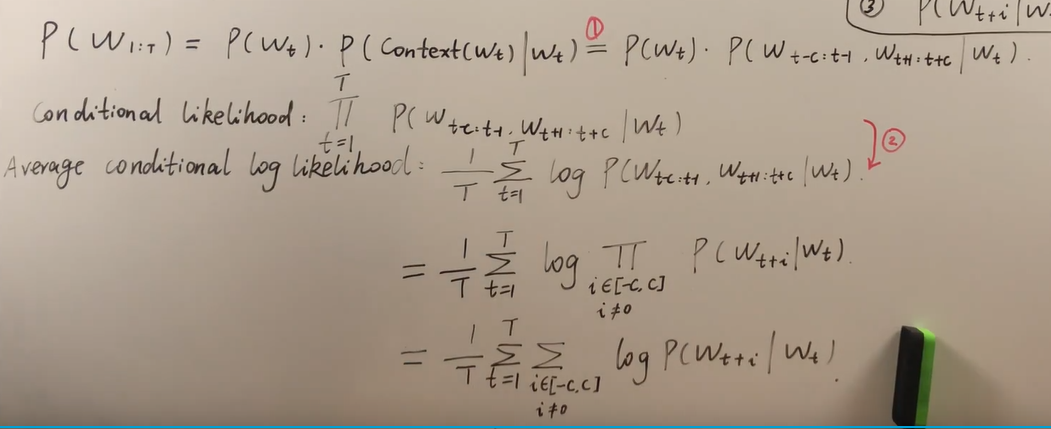 ③ P(W_{t+i}|W
P(W_{1:T}) = P(W_t) · P(Context(W_t)|W_t) ①= P(W_t) · P(W_{t-c:t-1}, W_{t+1:t+c}|W_t).
Conditional likelihood: ∏_{t=1}^{T} P(W_{t-c:t-1}, W_{t+1:t+c}|W_t)
②
Average conditional log likelihood: 1/T ∑_{t=1}^{T} log P(W_{t-c:t-1}, W_{t+1:t+c}|W_t).
= 1/T ∑_{t=1}^{T} log ∏_{i∈[-c,c] i≠0} P(W_{t+i}|W_t).
= 1/T ∑_{t=1}^{T} ∑_{i∈[-c,c] i≠0} log P(W_{t+i}|W_t).